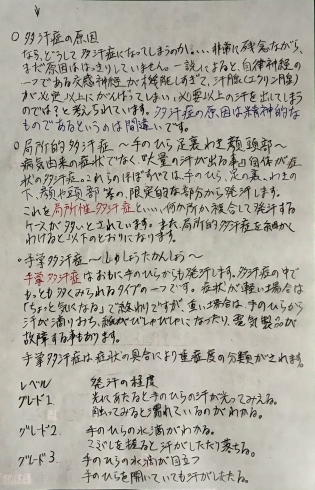 ○ 多汗症の原因
なら、どうして多汗症になってしまうのか。... 非常に残念ながら、
まだ原因ははっきりしていません。一説によると、自律神経の
一つである交感神経が機能しすぎて、汗腺(エクリン汗腺)
が必要以上にがんばってしまい、必要以上の汗を出してしまう
のでは?と考えられています。多汗症の原因は精神的な
ものであるというのは間違いです。
○ 局所的多汗症 〜手のひら足裏わき顔頭部〜
病気由来の症状でなく、"大量の汗が出る事"自体が症
状の多汗症。これらのほぼすべては、手のひら、足の裏、わきの
下、顔や頭部 等の、限定的な部分から発汗します。
これを局所性多汗症といい、何か所か複合して発汗する
ケースが多いとされています。また、局所的多汗症を細かく
わけると以下のとおりになります。
○ 手掌多汗症 〜しゅしょうたかんしょう〜
手掌多汗症はおもに手のひらからも発汗します。多汗症の中で
もっとも多くみられるタイプの一つです。症状が軽い場合は
「ちょっと気になる」で終わりですが、重い場合は、手のひらから
汗が滴りおち、紙がびしゃびしゃになったり、電気製品が
故障する事もあります。
手掌多汗症は症状の具合により重症度の分類がされます。
レベル 発汗の程度
グレード1. 光にあたると手のひらの汗が光ってみえる。
触ってみると濡れているのがわかる。
グレード2. 手のひらの水滴がわかる。
てぶしを握ると汗がしたたり落ちる。
グレード3. 手のひらの水滴が目立つ
手のひらを開いていても汗がしたたる。